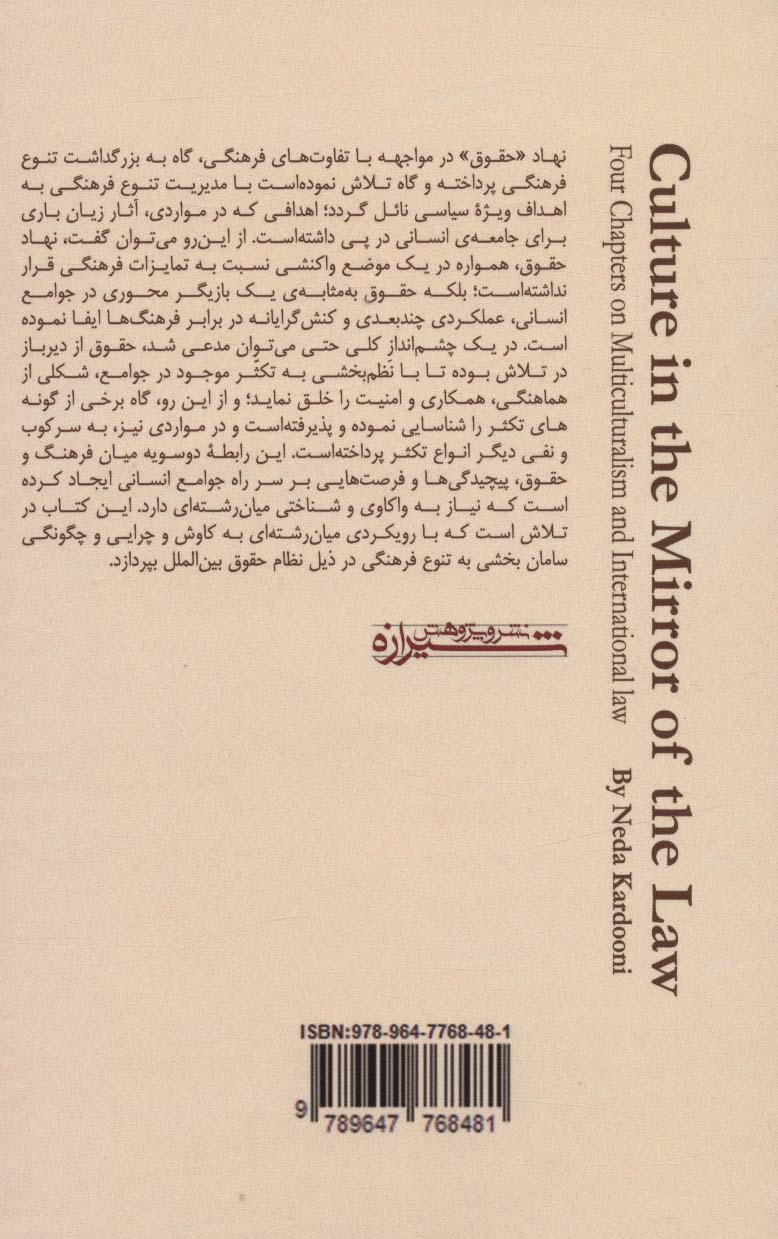 Culture in the Mirror of the Law
Four Chapters on Multiculturalism and International law By Neda Kardooni
نهاد «حقوق» در مواجهه با تفاوت‌های فرهنگی، گاه به بزرگداشت تنوع
فرهنگی پرداخته و گاه تلاش نموده‌است با مدیریت تنوع فرهنگی به
اهداف ویژهٔ سیاسی نائل گردد؛ اهدافی که در مواردی، آثار زیان باری
برای جامعه‌ی انسانی در پی داشته‌است. از این‌رو می‌توان گفت، نهاد
حقوق، همواره در یک موضع واکنشی نسبت به تمایزات فرهنگی قرار
نداشته‌است؛ بلکه حقوق به‌مثابه‌ی یک بازیگر محوری در جوامع
انسانی، عملکردی چندبعدی و کنش‌گرایانه در برابر فرهنگ‌ها ایفا نموده
است. در یک چشم‌انداز کلی حتی می‌توان مدعی شد، حقوق از دیرباز
در تلاش بوده تا با نَظم‌بخشی به تکثّر موجود در جوامع، شکلی از
هماهنگی، همکاری و امنیت را خلق نماید؛ و از این رو، گاه برخی از گونه
های تکثر را شناسایی نموده و پذیرفته‌است و در مواردی نیز، به سرکوب
و نفی دیگر انواع تکثر پرداخته‌است. این رابطهٔ دوسویه میان فرهنگ و
حقوق، پیچیدگی‌ها و فرصت‌هایی بر سر راه جوامع انسانی ایجاد کرده
است که نیاز به واکاوی و شناختی میان‌رشته‌ای دارد. این کتاب در
تلاش است که با رویکردی میان‌رشته‌ای به کاوش و چرایی و چگونگی
سامان بخشی به تنوع فرهنگی در ذیل نظام حقوق بین‌الملل بپردازد.
نشر و پژوهش
شیرازه
ISBN:978-964-7768-48-1
9 789647 768481